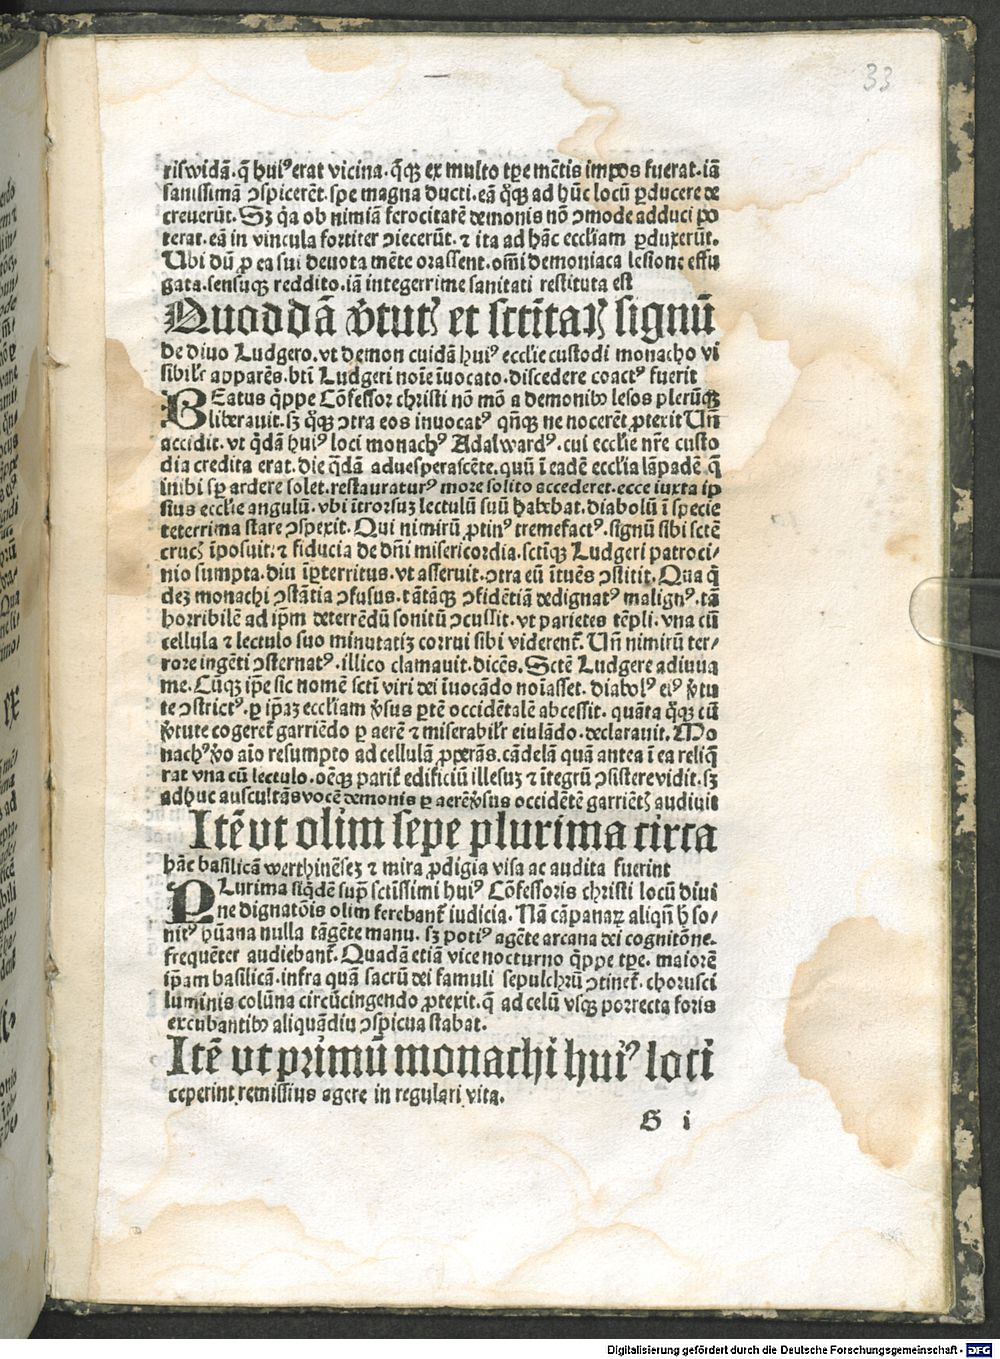 33
riswidā. q̄ huiꝰ erat vicina. q̄qꝫ ex multo tꝑe mētis impos fuerat. iā
sanissimā ꝯspicerēt. spe magna ducti. eā q̊qꝫ ad hūc locū ꝑducere de
creuerūt. Sꝫ q̄a ob nimiā ferocitatē demonis nō ꝯmode adduci po
terat. eā in vincula fortiter ꝯiecerūt. ⁊ ita ad hāc eccl'iam ꝑduxerūt.
Ubi dū ꝓ ea sui deuota mēte orassent. om̄i demoniaca lesione effu
gata. sensuqꝫ reddito. iā integerrime sanitati restituta est
Quoddā v̓tutꝭ et sctītaꝝ signū
de diuo Ludgero. vt demon cuidā huiꝰ eccl'ie custodi monacho vi
sibilr̄ apparēs. btī Ludgeri noīe īuocato. discedere coactꝰ fuerit
BEatus q̄ppe Cōfessor christi nō mō a demonibꝰ lesos plerūqꝫ
liberauit. sꝫ q̊qꝫ ꝯtra eos inuocatꝰ qn̄qꝫ ne nocerēt ꝓtexit Un̄
accidit. vt q̄dā huiꝰ loci monachꝰ Adalwardꝰ. cui eccl'ie nr̄e custo
dia credita erat. die q̄dā aduesperascēte. quū ī eadē eccl'ia lāpadē q̄
inibi sꝑ ardere solet. restauraturꝰ more solito accederet. ecce iuxta ip̄
sius eccl'ie angulū. vbi ītrorsuꝫ lectulū suū habebat. diabolū ī specie
teterrima stare ꝯspexit. Qui nimirū ꝓtinꝰ tremefactꝰ. signū sibi sctē
crucꝭ īposuit. ⁊ fiducia de dn̄i misericordia. sctīqꝫ Ludgeri patroci-
nio sumpta. diu īꝑterritus. vt asseruit. ꝯtra eū ītuēs ꝯstitit. Qua q̄
deꝫ monachi ꝯstātia ꝯfusus. tātāqꝫ ꝯfidētiā dedignatꝰ malignꝰ. tā
horribilē ad ip̄m deterrēdū sonitū ꝯcussit. vt parietes tēpli. vna cū
cellula ⁊ lectulo suo minutatiꝫ corrui sibi viderent̄. Un̄ nimirū ter-
rore ingēti ꝯsternatꝰ. illico clamauit. dicēs. Sctē Ludgere adiuua
me. Cūqꝫ ip̄e sic nomē sctī viri dei īuocādo noīasset. diabolꝰ eiꝰ v̓tu
te ꝯstrictꝰ. ꝑ ip̄aꝫ eccl'iam v̓sus ꝑtē occidētalē abcessit. quāta q̊qꝫ cū
v̓tute cogeret̄ garriēdo ꝑ aerē ⁊ miserabilr̄ eiulādo. declarauit. Mo
nachꝰ v̊o aīo resumpto ad cellulā ꝓperās. cādelā quā antea ī ea reliq̄
rat vna cū lectulo. oēqꝫ parit̄ edificiū illesuꝫ ⁊ ītegrū ꝯsistere vidit. sꝫ
adhuc auscultās vocē demonis ꝑ aerē v̓sus occidētē garriētꝭ audiuit
Itē vt olim sepe plurima circa
hāc basilicā werthinēseꝫ ⁊ mira ꝓdigia visa ac audita fuerint
PLurima siq̄dē suꝑ sctīssimi huiꝰ Cōfessoris christi locū diui
ne dignatōis olim ferebant̄ iudicia. Nā cāpanaꝝ aliqn̄ h̄ so-
nitꝰ hūana nulla tāgēte manu. sꝫ potiꝰ agēte arcana dei cognitōne.
frequēter audiebant̄. Quadā etiā vice nocturno q̄ppe tꝑe. maiorē
ip̄am basilicā. infra quā sacrū dei famuli sepulchrū ꝯtinet̄. chorusci
luminis colūna circūcingendo ꝓtexit. q̄ ad celū vsqꝫ porrecta foris
excubantibꝰ aliquādiu ꝯspicua stabat.
Itē vt primū monachi huiꝰ loci
ceperint remissius agere in regulari vita.
G i
Digitalisierung gefördert durch die Deutsche Forschungsgemeinschaft - DFG